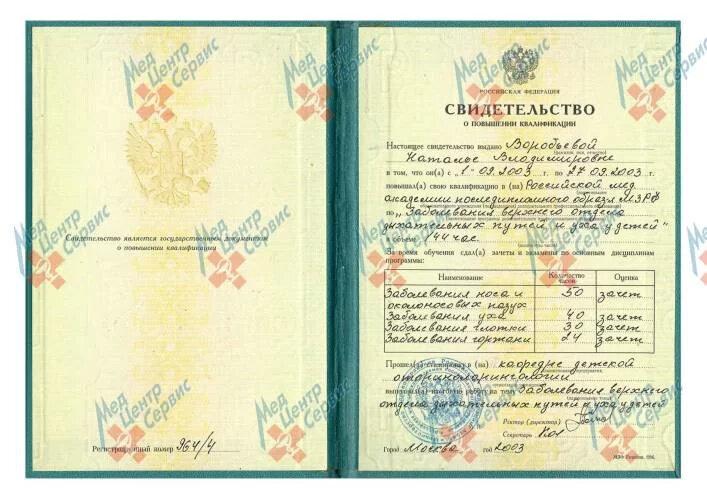 Свидетельство является государственным документом
о повышении квалификации
Регистрационный номер 964/4
РОССИЙСКАЯ ФЕДЕРАЦИЯ
СВИДЕТЕЛЬСТВО
О ПОВЫШЕНИИ КВАЛИФИКАЦИИ
Настоящее свидетельство выдано Воробьевой
Наталье Владимировне
в том, что он(а) с „1" 09.2003 г. по 27 09.2003 г.
повышал(а) свою квалификацию в (на) Российской мед.
академии последипломного образ-я МЗ РФ
по „Заболевания верхнего отдела
дыхательных путей и уха у детей"
в объеме 144 час.
За время обучения сдал(а) зачеты и экзамены по основным дисциплинам
программы:
Наименование Количество часов Оценка
Заболевания носа и 50 зачет
околоносовых пазух
Заболевания уха 40 зачет
Заболевания глотки 30 зачет
Заболевания гортани 24 зачет
Прошел(а) стажировку в (на) кафедре детской
оториноларингологии
выполнил(а) итоговую работу на тему Заболевания верхнего
отдела дыхательных путей и уха у детей
Ректор (директор)
Секретарь
Город Москва год 2003
МедЦентрСервис